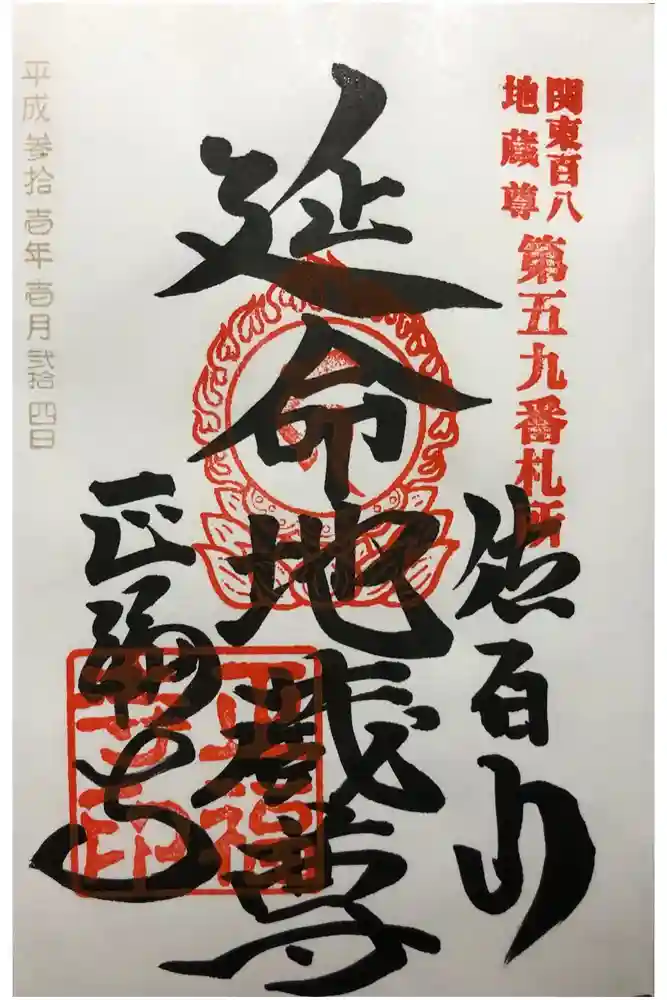 関東百八
地蔵尊
第五九番札所
佐白山
延命地蔵尊
正福寺
正福
寺印
平成参拾壱年壱月弐拾四日